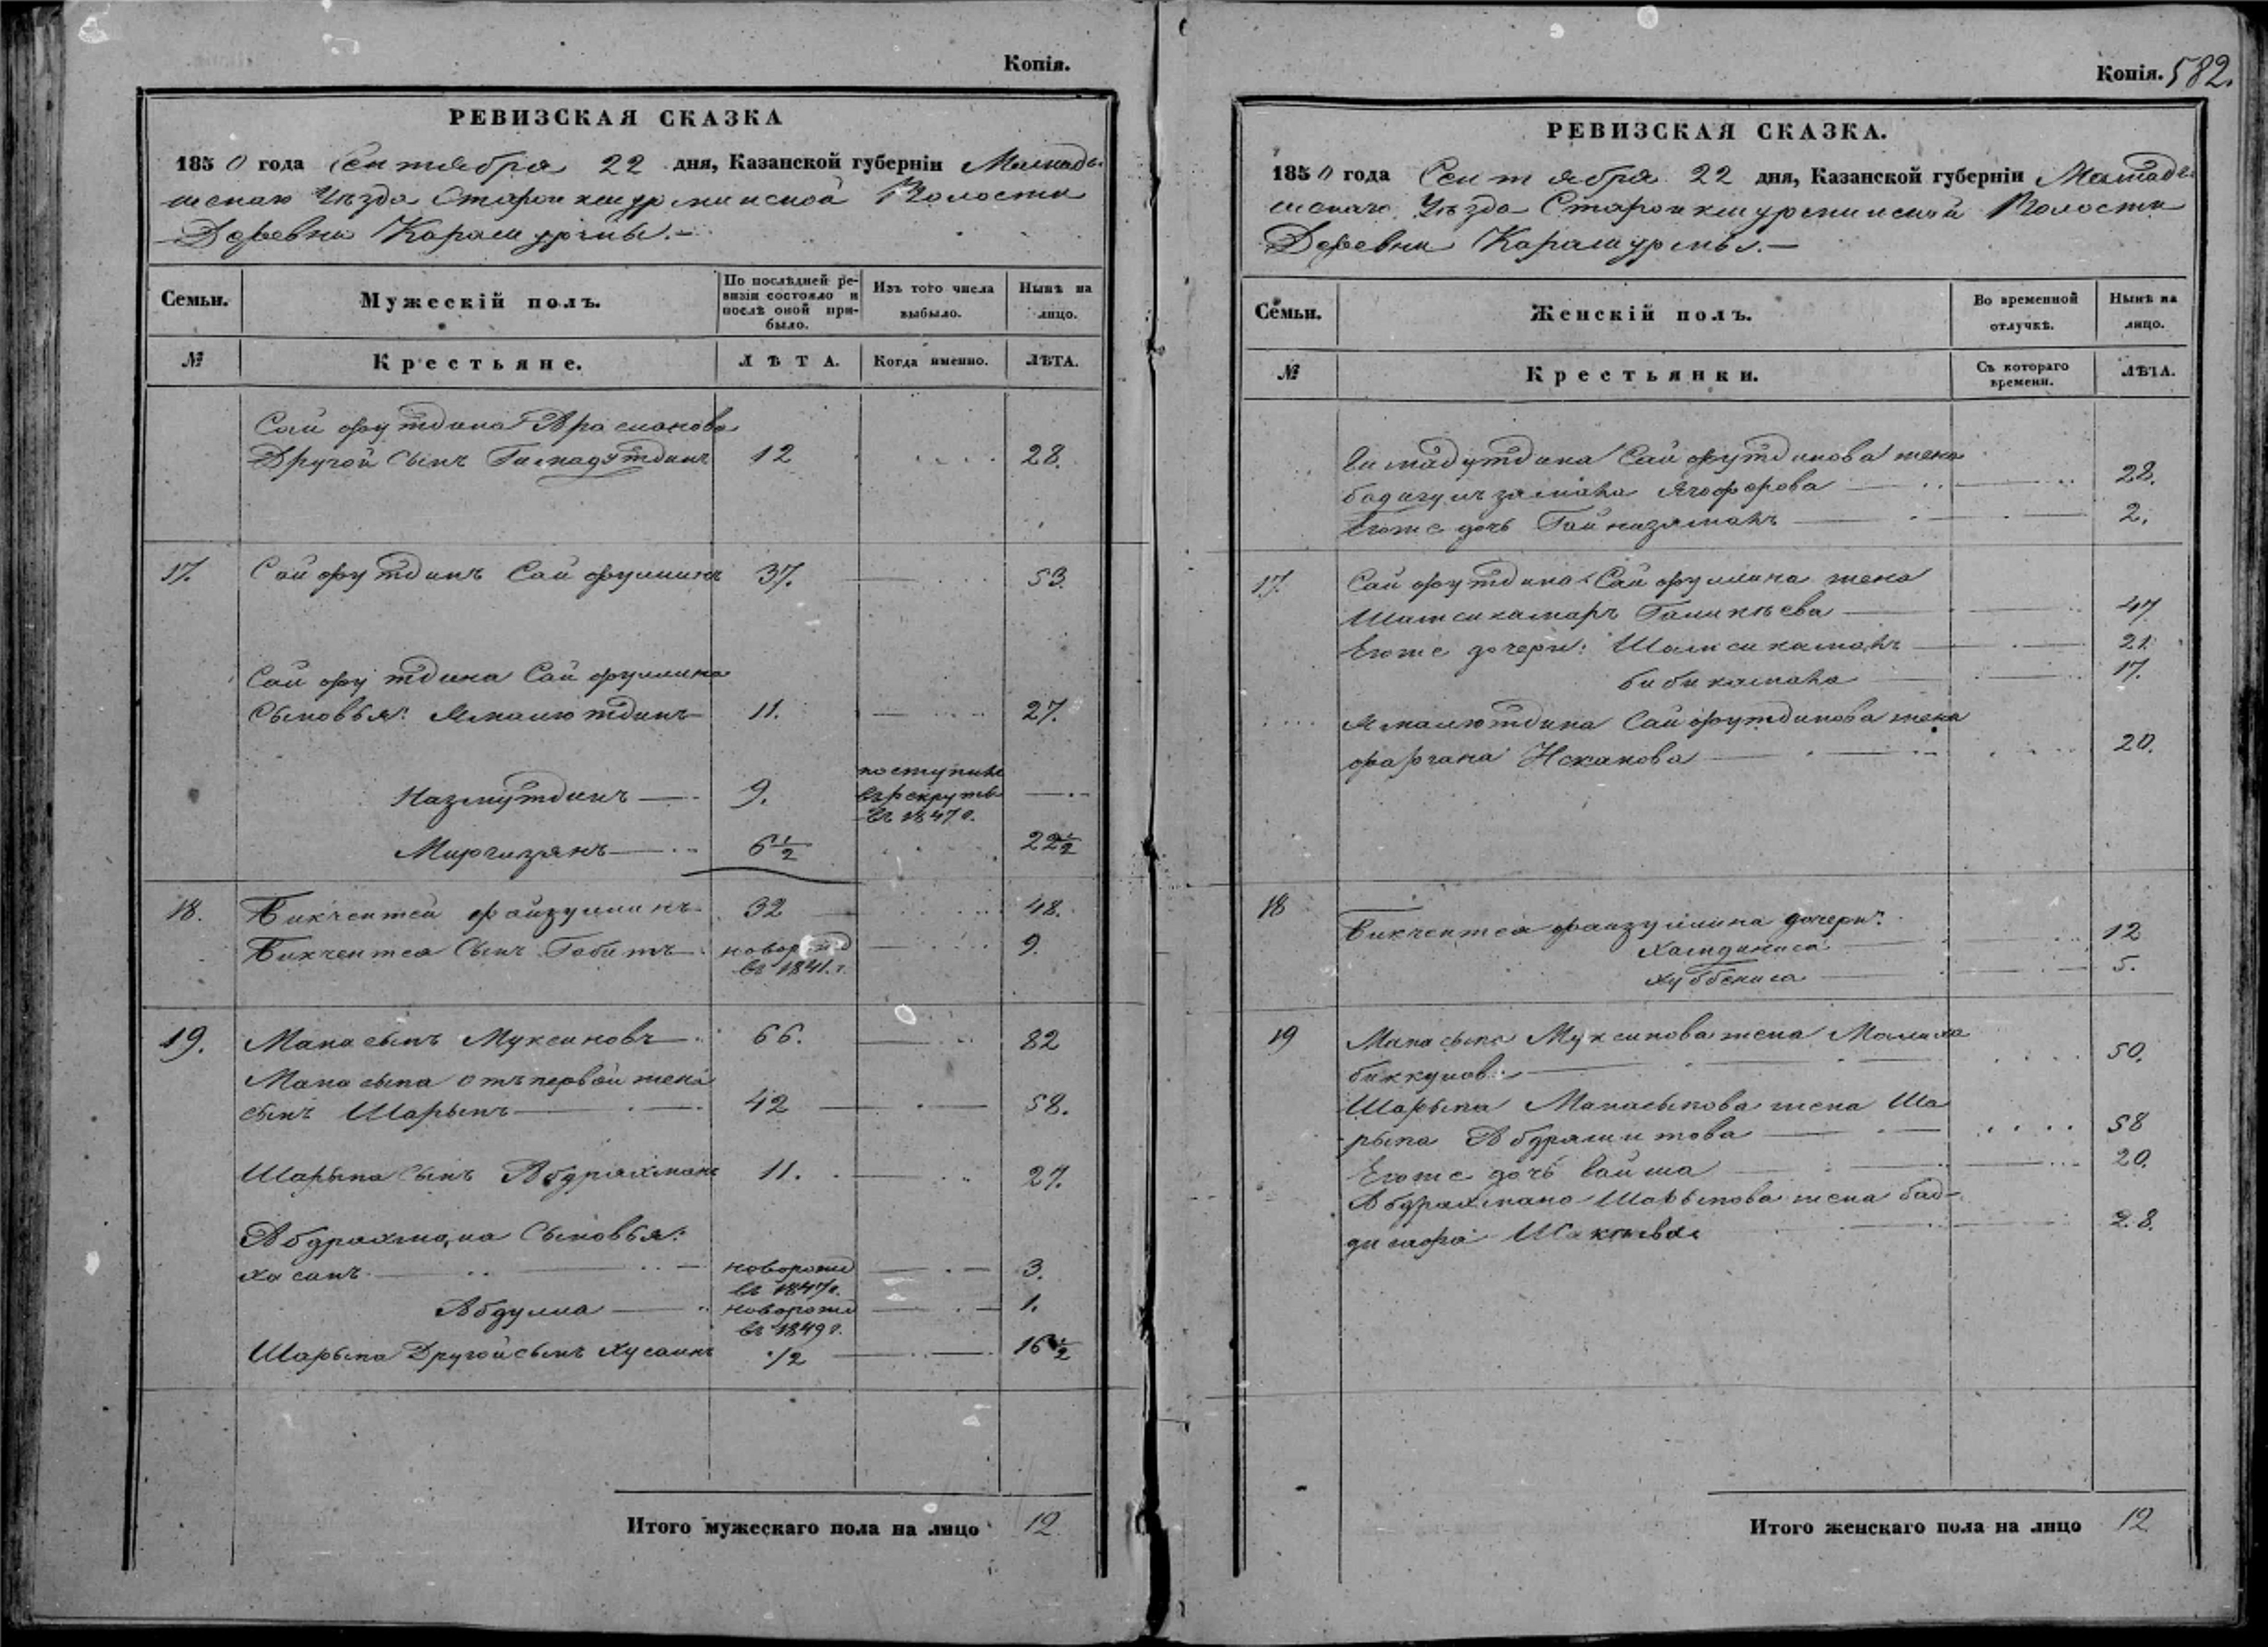 Копія.
РЕВИЗСКАЯ СКАЗКА
1850 года Сентября 22 дня, Казанской губерніи Мамады
шскаго Уѣзда Старо Волости
Деревни Карашурмы.
Семьи.
Мужескій полъ.
По послѣдней ре-
визіи состояло и
послѣ оной при-
было.
Изъ того числа
выбыло.
Нынѣ на
лицо.
№
Крестьяне.
ЛѢТА.
Когда именно.
ЛѢТА.
Сайфутдина Арсланова
Другой сынъ Гимадутдинъ 12 28.
17. Сайфутдинъ Сайфуллинъ 37. 53.
Сайфутдина Сайфуллина
Сыновья: Ямалютдинъ 11. 27.
Назмутдинъ 9. поступилъ
въ рекруты
въ 1847 г.
Миргизянъ 6 1/2 22 1/2
18. Бикчентей Файзуллинъ 32 48.
Бикчентея Сынъ Габитъ новорожд 9.
въ 1841. г.
19. Манасыпъ Муксиновъ 66. 82
Манасыпа отъ первой жены
сынъ Шарыпъ 42 58.
Шарыпа Сынъ Абдряхманъ 11. 27.
Абдрахмана Сыновья:
Хасанъ новорожд 3.
въ 1847 г.
Абдулла новорожд 1.
въ 1849 г.
Шарыпа Другой сынъ Хусаинъ 1/2 16 1/2
Итого мужескаго пола на лицо 12
Копія. 582.
РЕВИЗСКАЯ СКАЗКА.
1850 года Сентября 22 дня, Казанской губерніи Мамады
шскаго Уѣзда Старо Волости
Деревни Карашурмы.
Семьи.
Женскій полъ.
Во временной
отлучкѣ.
Нынѣ на
лицо.
№
Крестьянки.
Съ котораго
времени.
ЛѢТА.
Гимадутдина Сайфутдинова жена
Бадигулъзямала Ягофорова 28.
Егоже дочь Гайнизямалъ 2.
17. Сайфутдина Сайфуллина жена
Шамсикамаръ Галикѣева 47
Егоже дочери: Шамсикамалъ 21
Бибикамала 17.
Ямалютдина Сайфутдинова жена
Фаргана Искакова 20.
18 Бикчентея Файзуллина дочери:
Хамдиниса 12
Хуббениса 5.
19 Манасыпа Муксинова жена Малиха
Биккулова 50.
Шарыпа Манасыпова жена Ша
рыпа Абдряшитова 58
Егоже дочь Гайша 20.
Абдрахмана Шарыпова жена Бад-
Шакѣева 28.
Итого женскаго пола на лицо 12